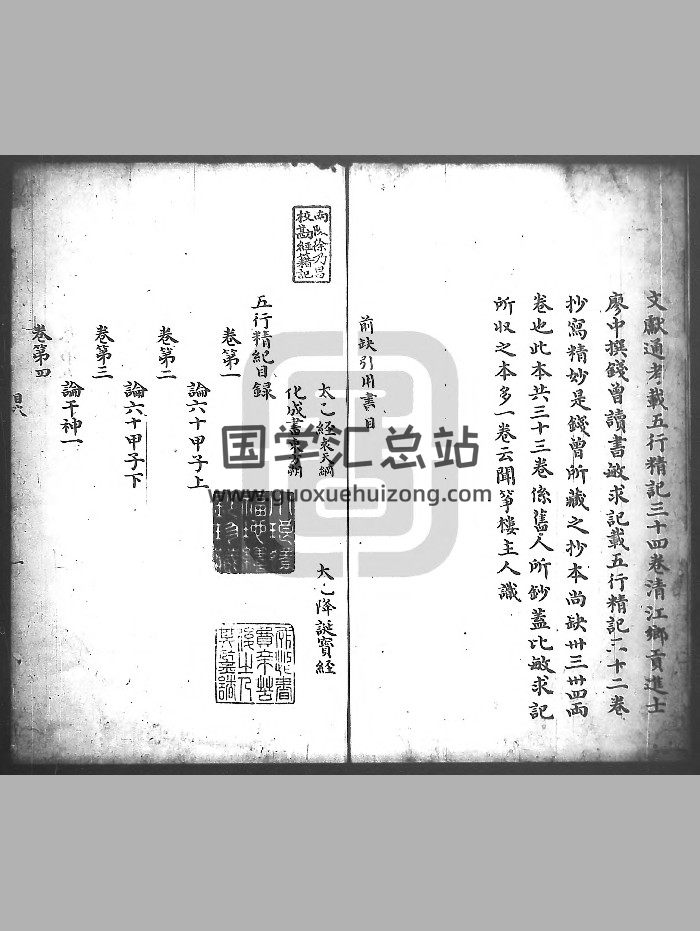 文獻通考載五行精記三十四卷清江鄉貢進士
廖中撰錢曾讀書敏求記載五行精記三十二卷
抄寫精妙是錢曾所藏之抄本尚缺卅三卅四兩
卷也此本共三十三卷係舊人所鈔蓋比敏求記
所収之本多一卷云聞箏樓主人識
前缺引用書目
太乙經袁天綱 太乙降誕寳經
化成書東方朔
南陵徐乃昌
校勘經籍記
五行精紀目録
卷第一
論六十甲子上
卷第二
論六十甲子下
卷第三
論干神一
卷第四
國学汇总站
www.guoxuehuizong.com